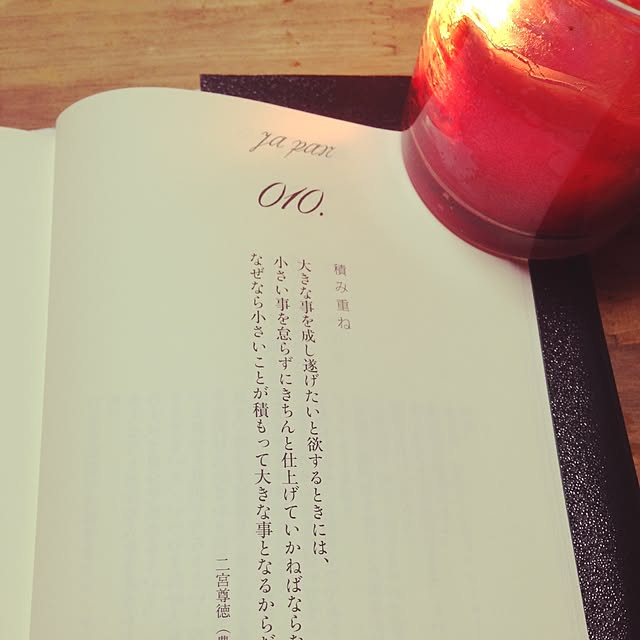 Japan
010.
積み重ね
大きな事を成し遂げたいと欲するときには、
小さい事を怠らずにきちんと仕上げていかねばならな
なぜなら小さいことが積もって大きな事となるからだ
二宮尊徳（農